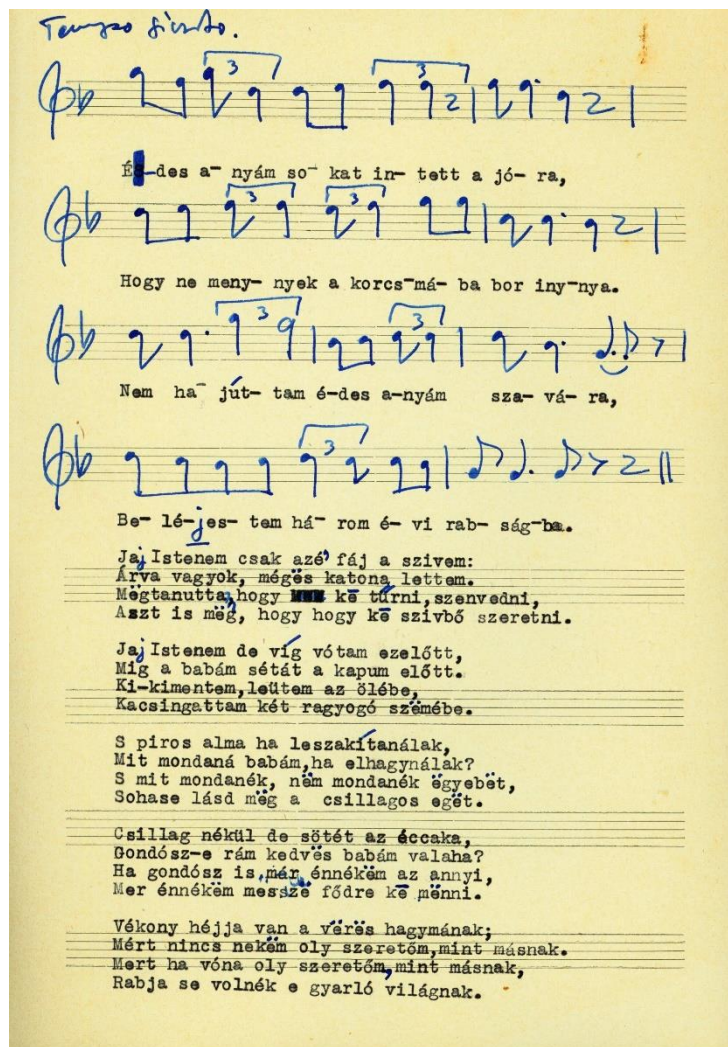 Tempo giusto.
3 3
É-des a- nyám so- kat in- tett a jó- ra,
3 3
Hogy ne meny- nyek a korcs-má- ba bor iny-nya.
3 3
Nem ha- jút- tam é-des a-nyám sza- vá- ra,
3
Be- lé-jes- tem há- rom é- vi rab- ság-ba.
Jaj Istenem csak azé' fáj a szivem:
Árva vagyok, mégës katona lettem.
Mëgtanutta, hogy kē tűrni,szenvedni,
Aszt is mëg, hogy hogy kē szivbő szeretni.
Jaj Istenem de víg vótam ezelőtt,
Mig a babám sétát a kapum előtt.
Ki-kimentem,leütem az ölébe,
Kacsingattam két ragyogó szëmébe.
S piros alma ha leszakítanálak,
Mit mondaná babám,ha elhagynálak?
S mit mondanék, nëm mondanék ëgyebët,
Sohase lásd mëg a csillagos eget.
Csillag nékül de sötét az éccaka,
Gondósz-e rám kedvës babám valaha?
Ha gondósz is,már énnékëm az annyi,
Mer énnékëm messzë fődre kē mënni.
Vékony héjja van a vërës hagymának;
Mért nincs nekëm oly szeretőm,mint másnak.
Mert ha vóna oly szeretőm,mint másnak,
Rabja se volnék e gyarló világnak.